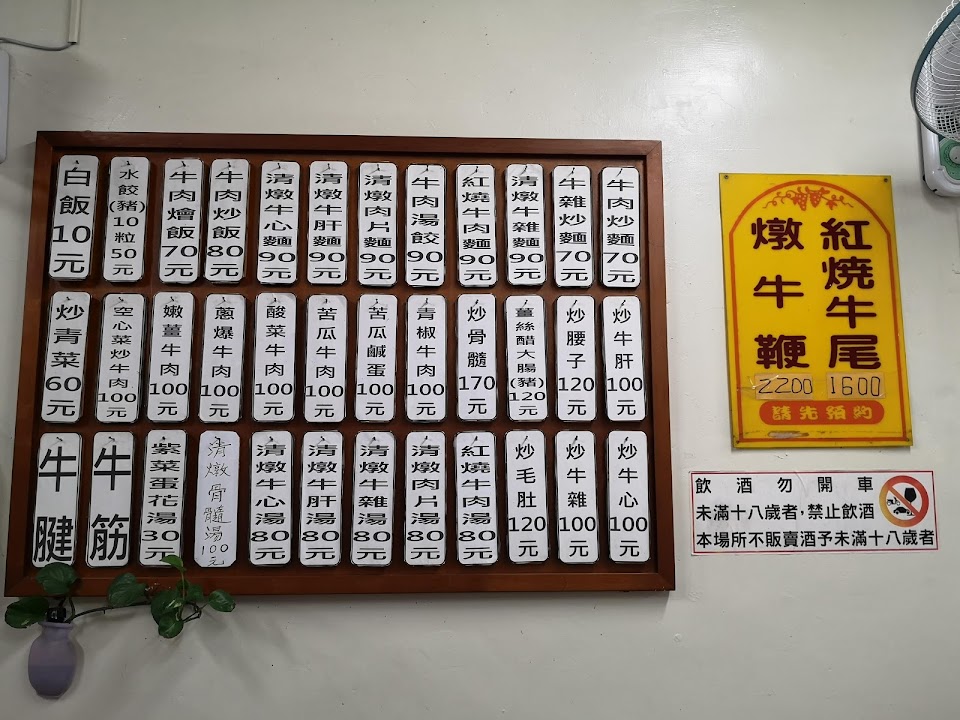 牛肉炒麵70元
牛雜炒麵70元
清燉牛雜麵90元
紅燒牛肉麵90元
牛肉湯餃90元
清燉肉片麵90元
清燉牛肝麵90元
清燉牛心麵90元
牛肉炒飯80元
牛肉燴飯70元
水餃(豬)10粒50元
白飯10元
炒牛肝100元
炒腰子120元
薑絲醋大腸(豬)120元
炒骨髓170元
青椒牛肉100元
苦瓜鹹蛋100元
苦瓜牛肉100元
酸菜牛肉100元
蔥爆牛肉100元
嫩薑牛肉100元
空心菜炒牛肉100元
炒青菜60元
炒牛心100元
炒牛雜100元
炒毛肚120元
紅燒牛肉湯80元
清燉肉片湯80元
清燉牛雜湯80元
清燉牛肝湯80元
清燉牛心湯80元
清燉骨髓湯100元
紫菜蛋花湯30元
牛筋
牛腱
紅燒牛尾1600
燉牛鞭2200
請先預約
飲酒勿開車
未滿十八歲者,禁止飲酒
本場所不販賣酒予未滿十八歲者